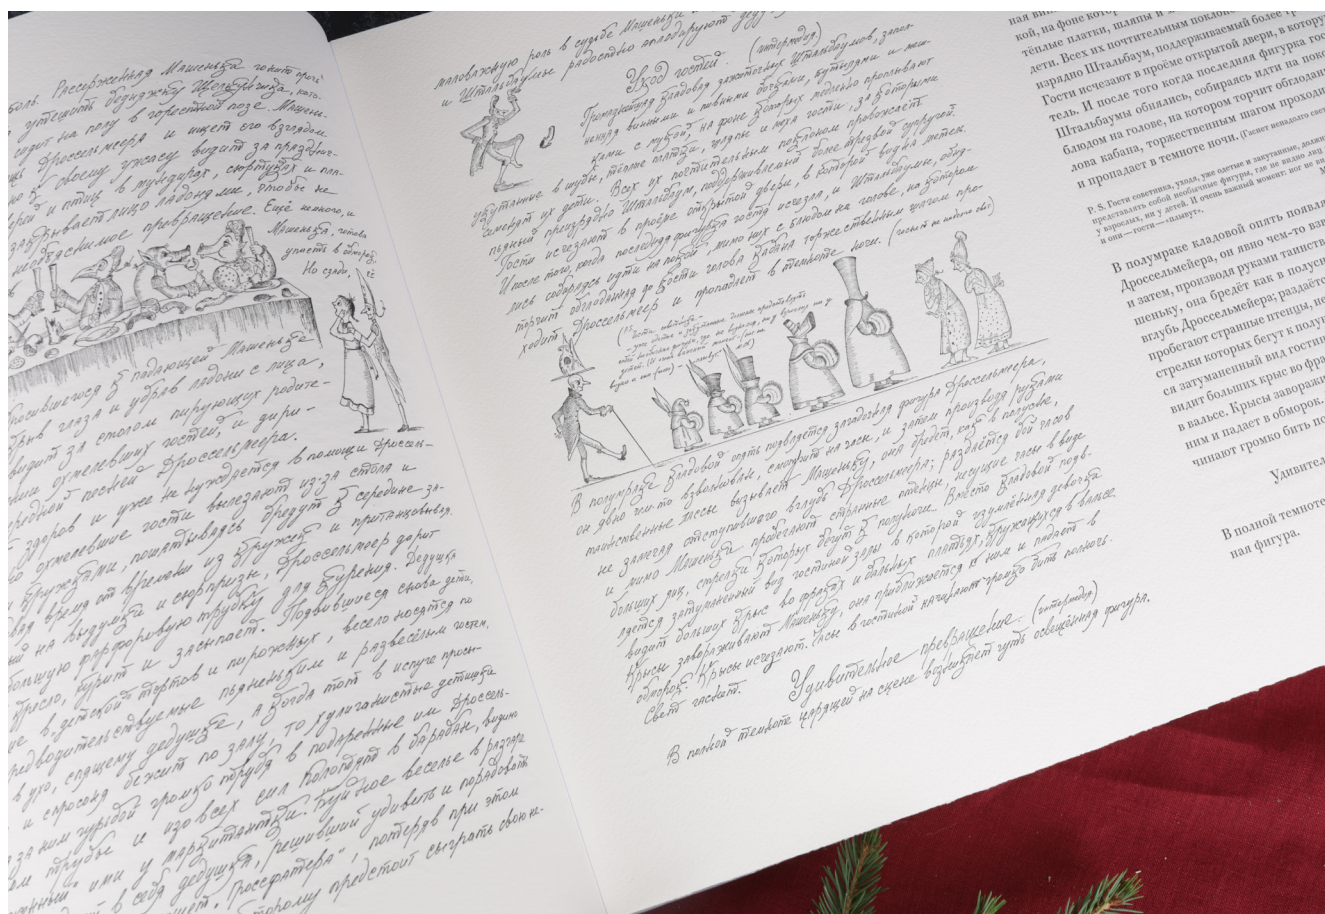 боль. Рассерженная Машенька гонит прочь
утешить беднягу Щелкунчика, кото-
сидит на полу в горестной позе. Машень-
Дроссельмейера и ищет его взглядом
к своему ужасу видит за празднич-
и птиц в мундирах, сюртуках и пла-
закрывает лицо ладонями, чтобы не
необъяснимое превращение. Ещё немного, и
Машенька, готова
упасть в обморок,
Но сзади, к
бросившемуся к падающей Машеньке
открыв глаза и убрав ладони с лица,
видит за столом пирующих родите-
охмелевших гостей, и дири-
песней Дроссельмейера.
здоров и уже не нуждается в помощи Дроссель-
охмелевшие гости вылезают из-за стола и
кружками, пошатываясь бредут к середине за-
время от времени из кружек и пританцовывая.
на выдумки и сюрпризы, Дроссельмейер дарит
большую фарфоровую трубку для курения. Дедушка
кресло, курит и засыпает. Появившиеся снова дети,
в детской тортов и пирожных, весело носятся по
предводительствуемые пьяненьким и развесёлым гостем,
в ухо, спящему дедушке, а когда тот в испуге просы-
и спросонья бежит по залу, то хулиганистые детишки
за ним гурьбой громко трубя в подаренные им Дроссель-
трубы и изо всех сил колотят в барабан, видимо
ими у маркитантки. Буйное веселье в разгаре
в себя дедушка, решивший удивить и порадовать
"Гроссфатера", потеряв при этом
которому предстоит сыграть свою не-
маловажную роль в судьбе Машеньки
и Штальбаумы радостно аплодируют дедушке
Уход гостей. (интермедия)
Громаднейшая кладовая зажиточных Штальбаумов, запол-
ненная винными и пивными бочками, бутылями и меш-
ками с мукой, на фоне которых медленно проплывают
укутанные в шубы, тёплые платки, шляпы и муфты гости, за которыми
семенят их дети. Всех их почтительным поклоном провожает
пьяный преизрядно Штальбаум, поддерживаемый более трезвой супругой.
Гости исчезают в проёме открытой двери, в которой видна метель.
И после того, когда последняя фигурка гостя исчезла, и Штальбаумы, обняв-
лись собираясь идти на покой мимо них с блюдом на голове, на котором
торчит обглоданная до кости голова кабана торжественным шагом про-
ходит Дроссельмейер и пропадает в темноте ночи.
В полумраке кладовой опять появляется загадочная фигура Дроссельмейера,
он явно чем-то взволнован, смотрит на часы, и затем производя руками
таинственные пассы вызывает Машеньку, она бредёт, как в полусне,
не замечая отступившего вглубь Дроссельмейера; раздаётся бой часов
и мимо Машеньки пробегают странные птенцы, несущие часы в виде
больших яиц, стрелки которых бегут к полуночи... Вместо кладовой появ-
ляется затуманенный вид гостиной залы в которой изумлённая девочка
видит больших крыс во фраках и бальных платьях, кружащихся в вальсе.
Крысы завораживают Машеньку, она приближается к ним и падает в
обморок. Крысы исчезают. Часы в гостиной начинают громко бить полночь.
Свет гаснет.
Удивительное превращение. (интермедия)
В полной темноте царящей на сцене возникает чуть освещённая фигура.
кой, на фоне которых
тёплые платки, шляпы и
дети. Всех их почтительным поклоном
изрядно Штальбаум, поддерживаемый более тре
Гости исчезают в проёме открытой двери, в котору
тель. И после того когда последняя фигурка гос
Штальбаумы обнялись, собираясь идти на пок
блюдом на голове, на котором торчит обглодан
лова кабана, торжественным шагом проходи
и пропадает в темноте ночи. (Гаснет ненадолго свет
P. S. Гости советника, уходя, уже одетые и закутанные, должн
представлять собой необычные фигуры, где не видно лиц
у взрослых, ни у детей. И очень важный момент: ног не ви
и они — гости — «плывут».
В полумраке кладовой опять появля
Дроссельмейера, он явно чем-то взв
и затем, производя руками таинств
шеньку, она бредёт как в полусн
вглубь Дроссельмейера; раздаёт
пробегают странные птенцы, не
стрелки которых бегут к полун
ся затуманенный вид гостин
видит больших крыс во фра
в вальсе. Крысы заворажи
ним и падает в обморок.
чинают громко бить по
Удивител
В полной темноте
ная фигура.